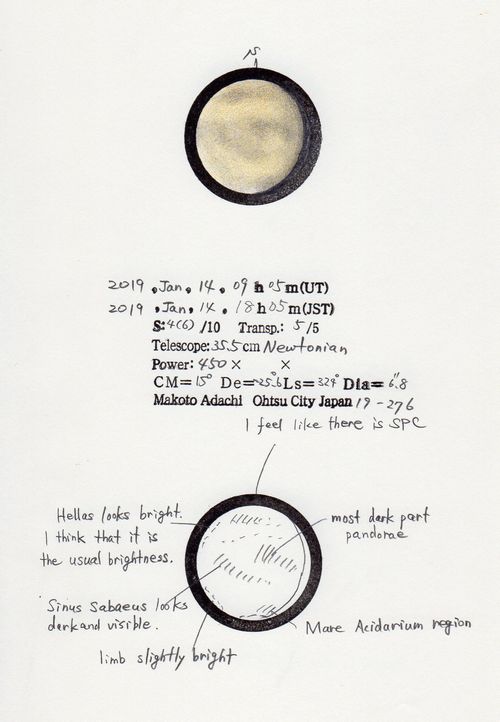 N
2019 . Jan . 14 . 09 h 05 m (UT)
2019 . Jan . 14 . 18 h 05 m (JST)
S: 4(6) /10 Transp.: 5 /5
Telescope: 35.5 cm Newtonian
Power: 450 × ×
CM= 15° De= -25.6° Ls= 324° Dia= 6.8"
Makoto Adachi Ohtsu City Japan 19-276
I feel like there is SPC
Hellas looks bright.
I think that it is
the usual brightness.
most dark part
pandorae
Sinus Sabaeus looks
dark and visible.
Mare Acidarium region
limb slightly bright